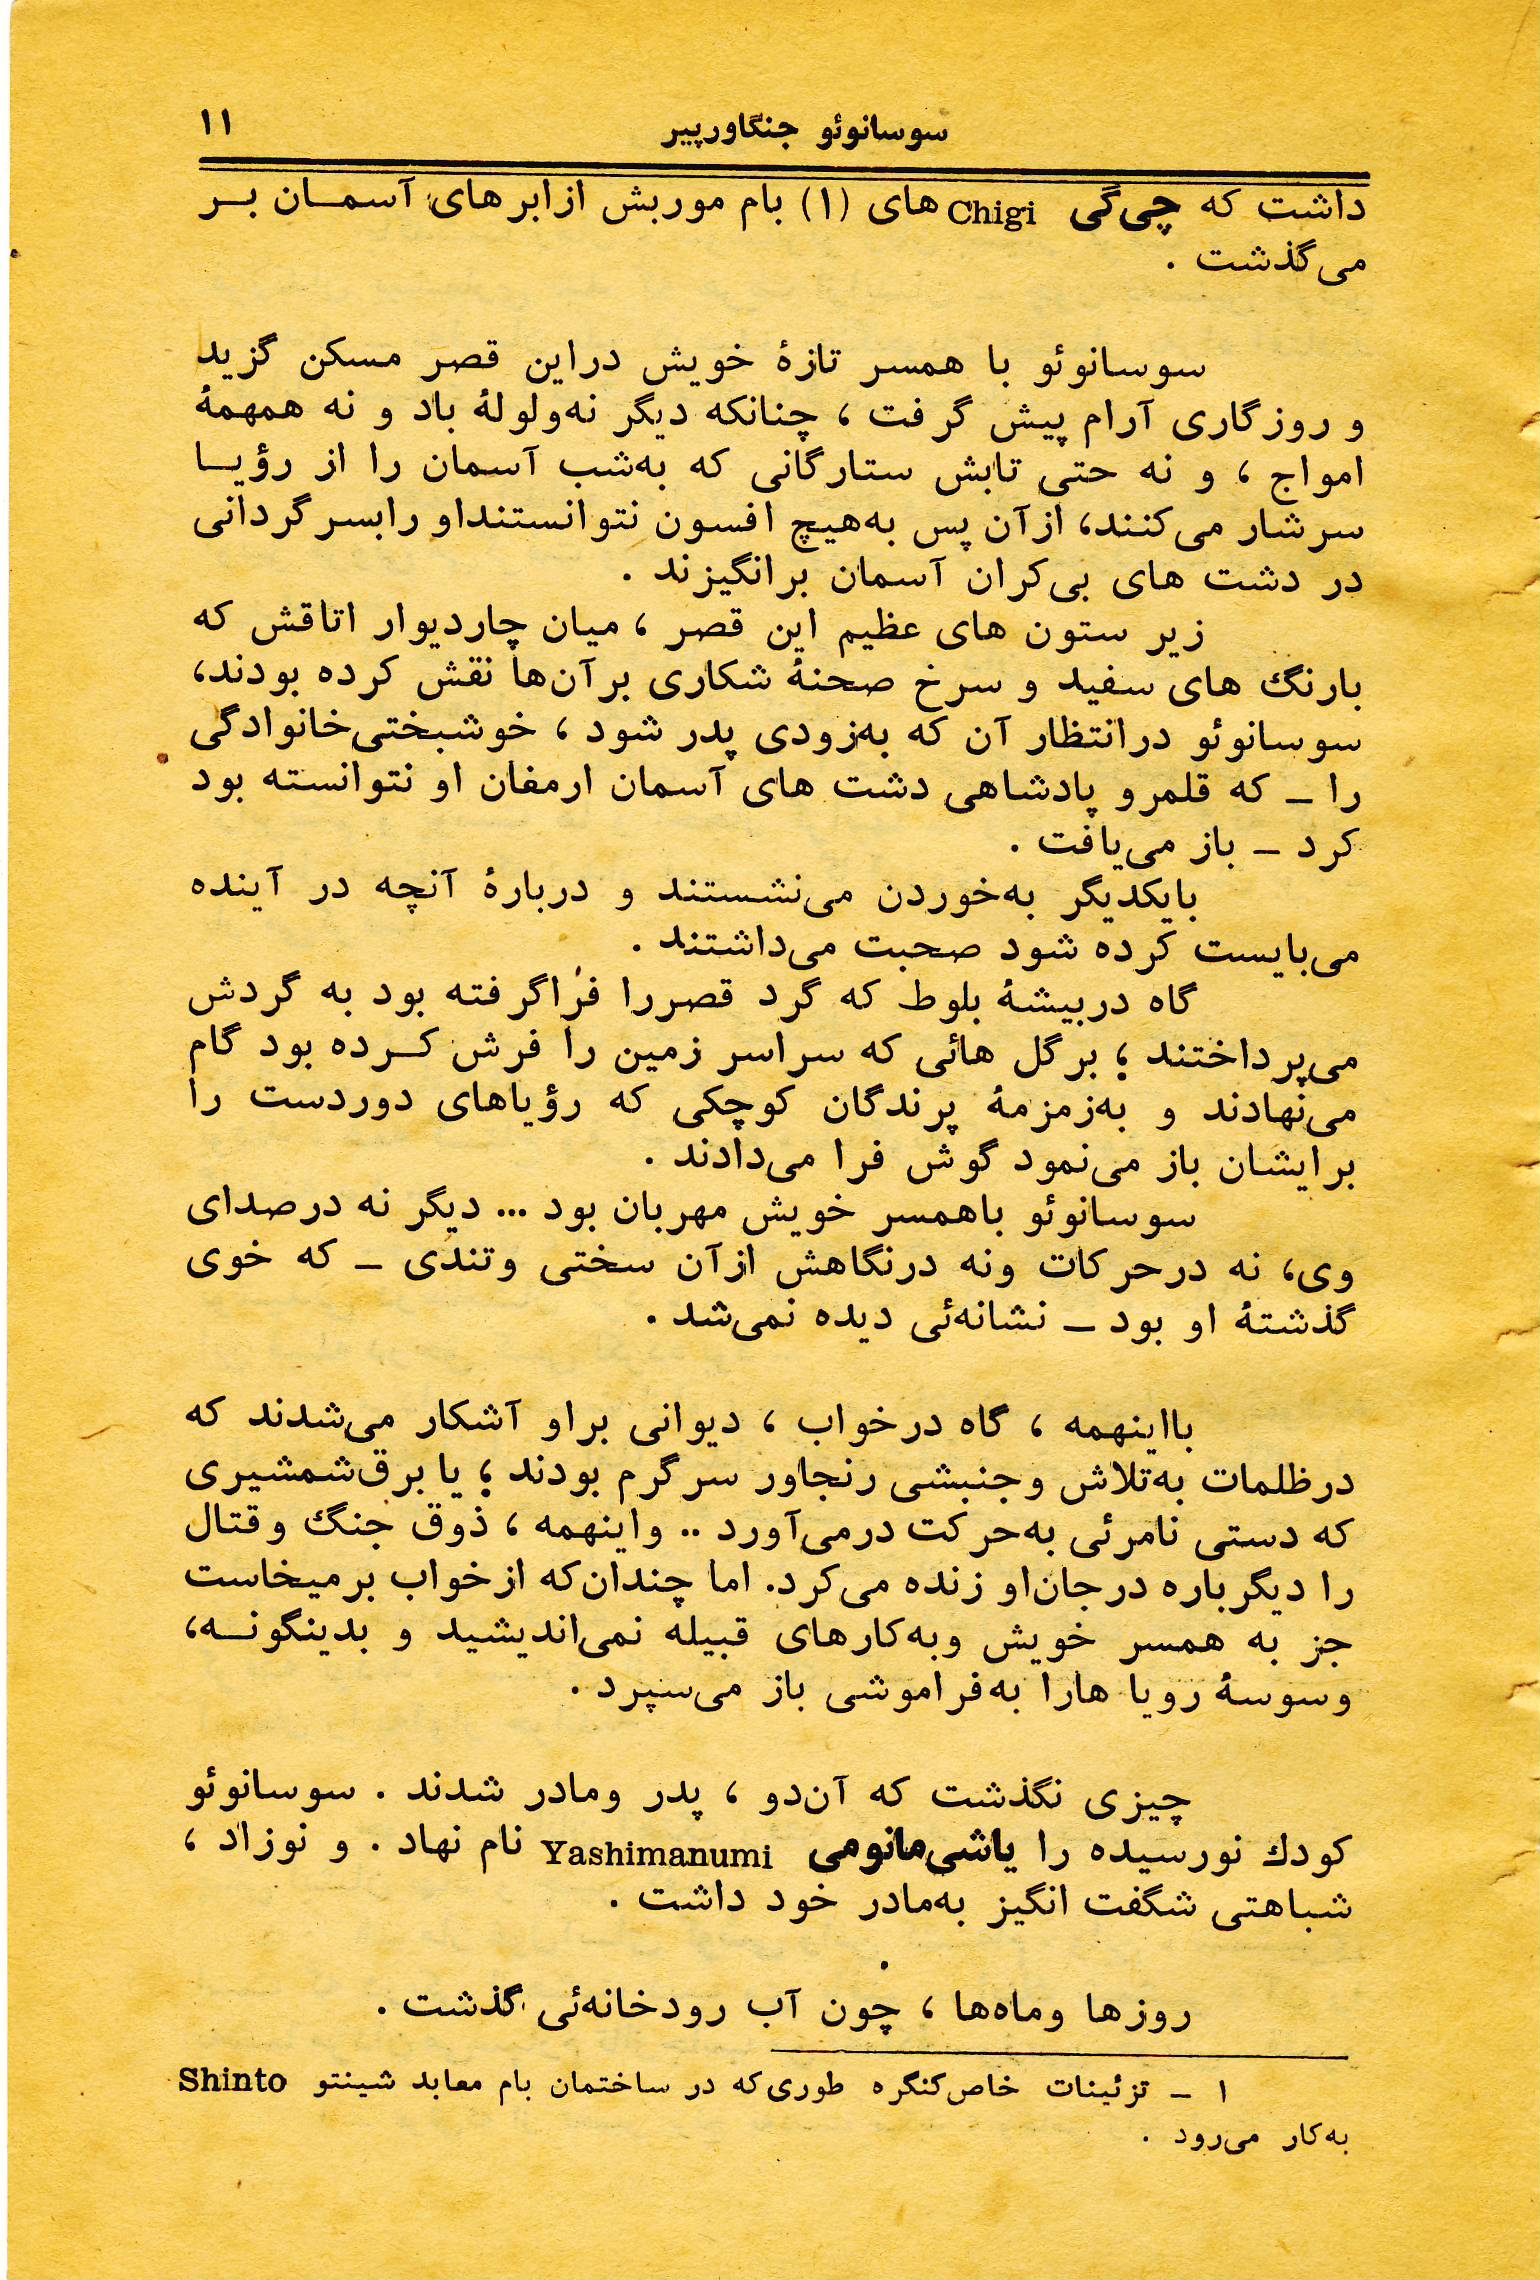 سوسانوئو جنگاورپیر ۱۱
داشت که چی‌گی Chigi های (۱) بام موربش ازابرهای آسمــان بــر
می‌گذشت .
سوسانوئو با همسر تازهٔ خویش دراین قصر مسکن گزید
و روزگاری آرام پیش گرفت ، چنانکه دیگر نه‌ولولهٔ باد و نه همهمهٔ
امواج ، و نه حتی تابش ستارگانی که به‌شب آسمان را از رؤیــا
سرشار می‌کنند، ازآن پس به‌هیچ افسون نتوانستنداو رابسرگردانی
در دشت های بی‌کران آسمان برانگیزند .
زیر ستون های عظیم این قصر ، میان چاردیوار اتاقش که
بارنگ های سفید و سرخ صحنهٔ شکاری برآن‌ها نقش کرده بودند،
سوسانوئو درانتظار آن که به‌زودی پدر شود ، خوشبختی‌خانوادگی
را ـ که قلمرو پادشاهی دشت های آسمان ارمغان او نتوانسته بود
کرد ـ باز می‌یافت .
بایکدیگر به‌خوردن می‌نشستند و دربارهٔ آنچه در آینده
می‌بایست کرده شود صحبت می‌داشتند .
گاه دربیشهٔ بلوط که گرد قصررا فراگرفته بود به گردش
می‌پرداختند ؛ برگل هائی که سراسر زمین را فرش کــرده بود گام
می‌نهادند و به‌زمزمهٔ پرندگان کوچکی که رؤیاهای دوردست را
برایشان باز می‌نمود گوش فرا می‌دادند .
سوسانوئو باهمسر خویش مهربان بود ... دیگر نه درصدای
وی، نه درحرکات ونه درنگاهش ازآن سختی وتندی ـ که خوی
گذشتهٔ او بود ـ نشانه‌ئی دیده نمی‌شد .
بااینهمه ، گاه درخواب ، دیوانی براو آشکار می‌شدند که
درظلمات به‌تلاش وجنبشی رنجاور سرگرم بودند ؛ یا برق‌شمشیری
که دستی نامرئی به‌حرکت درمی‌آورد .. واینهمه ، ذوق جنگ وقتال
را دیگرباره درجان‌او زنده می‌کرد. اما چندان‌که ازخواب برمیخاست
جز به همسر خویش وبه‌کارهای قبیله نمی‌اندیشید و بدینگونــه،
وسوسهٔ رویا هارا به‌فراموشی باز می‌سپرد .
چیزی نگذشت که آن‌دو ، پدر ومادر شدند . سوسانوئو
کودك نورسیده را یاشی‌مانومی Yashimanumi نام نهاد . و نوزاد ،
شباهتی شگفت انگیز به‌مادر خود داشت .
روزها وماه‌ها ، چون آب رودخانه‌ئی گذشت .
۱ ـ تزئینات خاص‌کنگره طوری‌که در ساختمان بام معابد شینتو Shinto
به‌کار می‌رود .